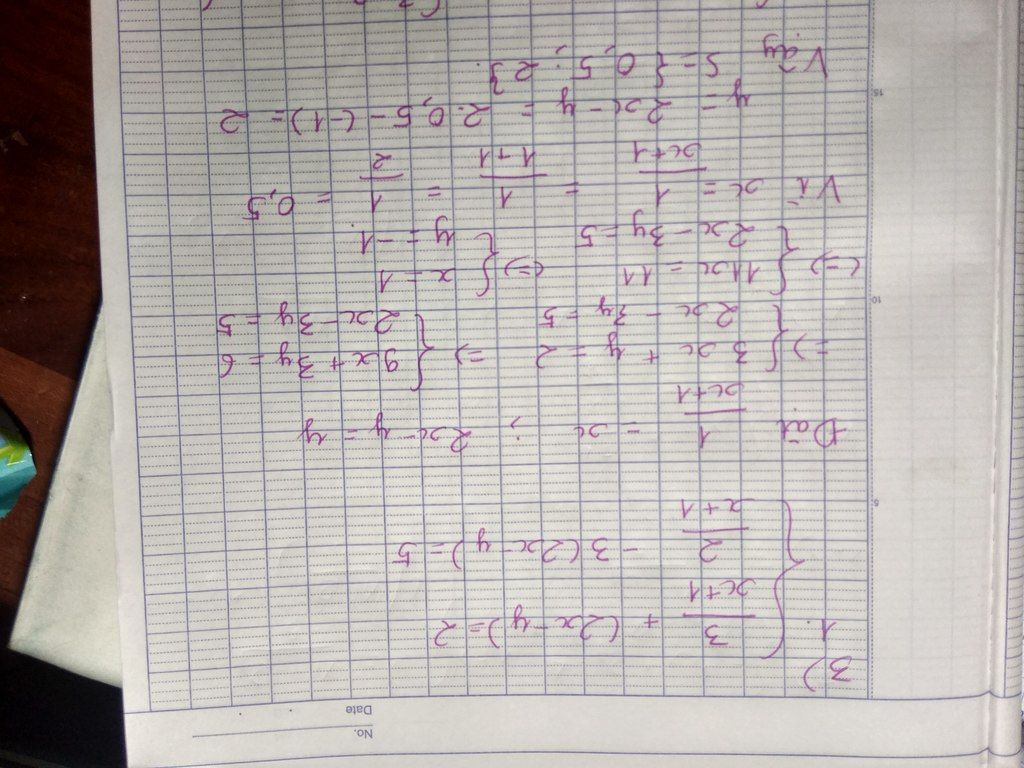 No.
Date
3)
1. { 3/(x+1) + (2x-y) = 2
2/(x+1) - 3(2x-y) = 5
5
Đặt 1/(x+1) = x ; 2x-y = y
=> { 3x + y = 2 => { 9x + 3y = 6
2x - 3y = 5 2x - 3y = 5
10
<=> { 11x = 11 <=> { x = 1
2x - 3y = 5 y = -1.
Vì x = 1/(x+1) = 1/(1+1) = 1/2 = 0,5
y = 2x - y = 2.0,5 - (-1) = 2
15
Vậy S = { 0,5 ; 2}.